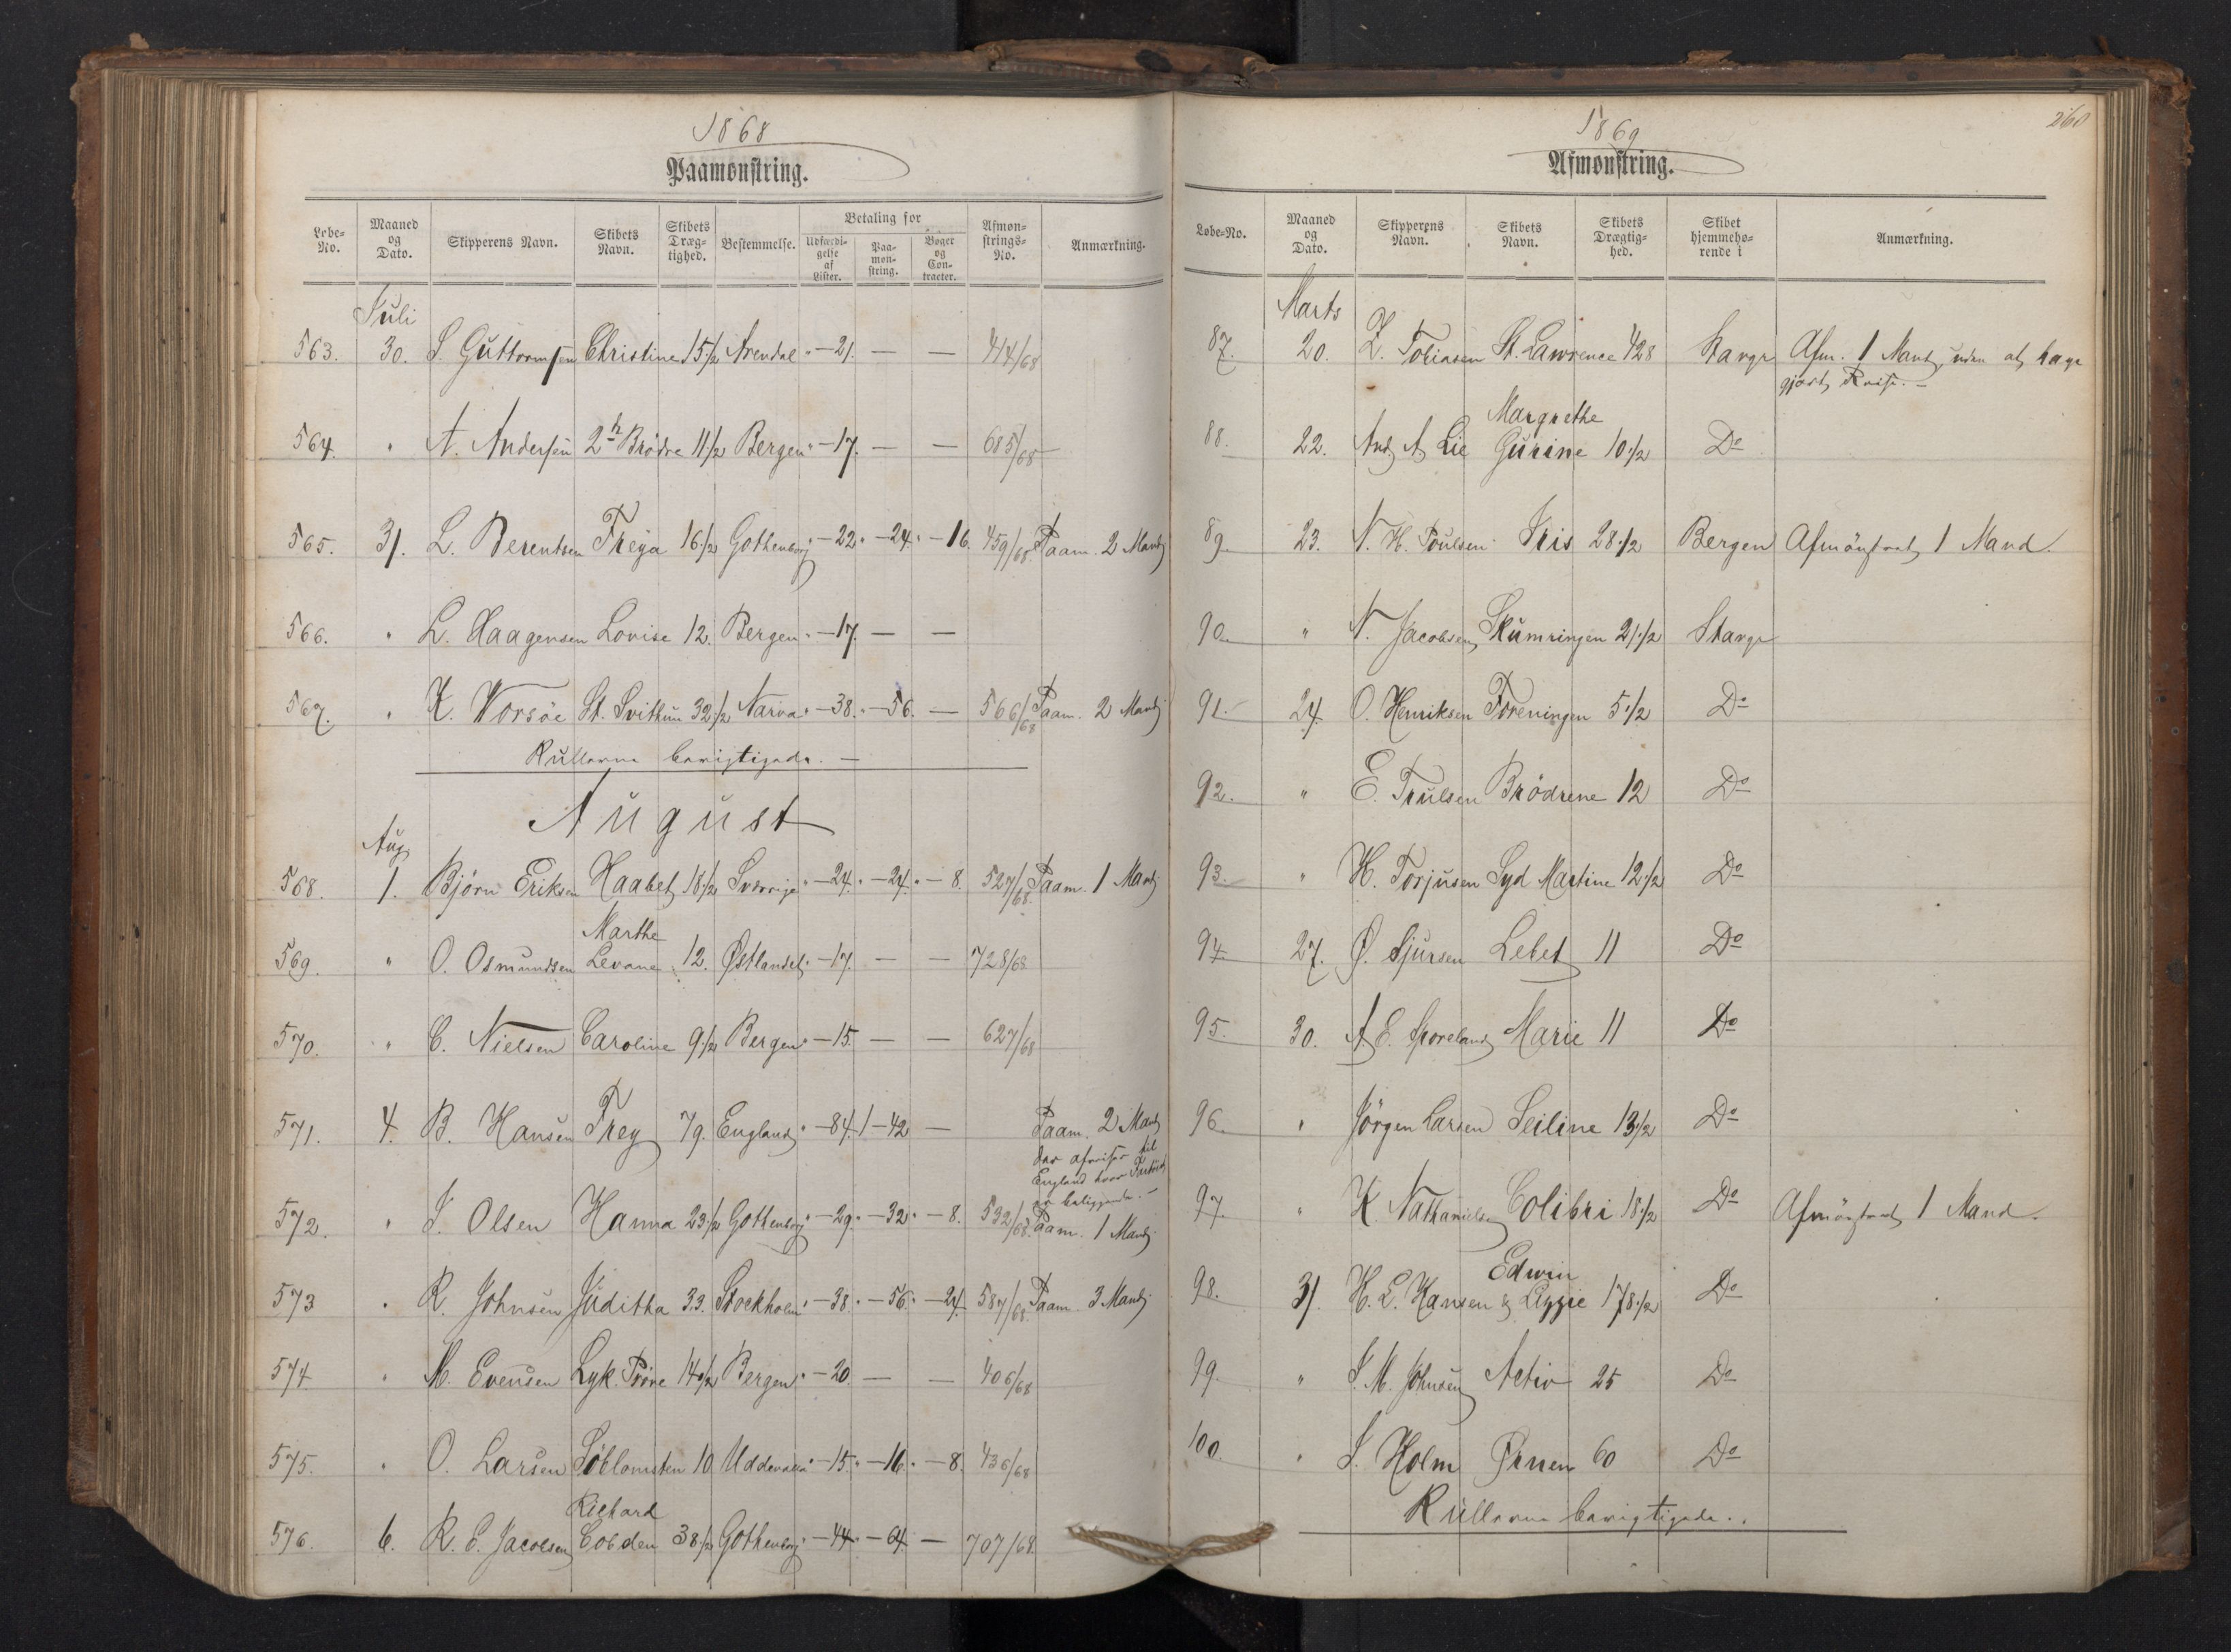 1868
Paamønstring.
Løbe-No. Maaned og Dato. Skipperens Navn. Skibets Navn. Skibets Dræg-tighed. Bestemmelse. Betaling for Udfærdi-gelse af Lister. Paa-møn-string. Bøger og Con-tracter. Afmøn-strings-No. Anmærkning.
Juli
563. 30. S. Guttormsen Christine 15 1/2 Arendal " - 21. — — 414/68
564. " A. Andersen 2de Brødre 11 1/2 Bergen " - 17. — — 685/68
565. 31. L. Berentsen Freya 16 1/2 Gothenborg " - 22. " - 24. " - 16. 459/68. Paam. 2 Mand
566. " L. Haagensen Lovise 12. Bergen " - 17. — —
567. " K. Worsöe St. Svithun 32 1/2 Narva " - 38. " - 56. — 566/68 Paam. 2 Mand
Rullerne berigtigede. —
August
Aug.
568. 1. Björn Eriksen Haabet 18 1/2 Sverrige " - 24. " - 24. " - 8. 527/68. Paam. 1 Mand
Marthe
569. " O. Osmundsen Levane 12. Østlandet " - 17. — — 728/68
570. " C. Nielsen Caroline 9 1/2 Bergen " - 15. — — 627/68
571. 4. B. Hansen Frey 79. England " - 84. 1 - 42 — Paam. 2 Mand
der afreiser til
England hvor
er beliggende. —
572. " J. Olsen Hanna 23 1/2 Gothenborg " - 29. " - 32. " - 8. 532/68. Paam. 1 Mand.
573 " R. Johnsen Juditha 33. Stockholm " - 38. " - 56. " - 24. 587/68. Paam. 3 Mand.
574 " M. Evensen Lyk. Pröve 14 1/2 Bergen " - 20. — — 406/68
575. " O. Larsen Söblomsten 10 Uddevalla " - 15. " - 16. " - 8. 436/68
Richard
576. 6. R. E. Jacobsen Cobden 38 1/2 Gothenborg " - 44. " - 64. — 707/68.
260
1869
Afmønstring.
Løbe-No. Maaned og Dato. Skipperens Navn. Skibets Navn. Skibets Drægtig-hed. Skibet hjemmehø-rende i Anmærkning.
Marts
87. 20. Z. Tobiasen St. Lawrence 428 Stavgr Afm. 1 Mand, uden at have
gjort Reise. —
Margrethe
88. 22. And. A. Lie Gurine 10 1/2 Do
89. 23. N. H. Poulsen Iris 28 1/2 Bergen Afmönstret 1 Mand.
90. " N. Jacobsen Skumringen 21 1/2 Stavgr
91. 24. O. Henriksen Foreningen 5 1/2 Do
92. " E. Trulsen Brödrene 12 Do
93. " H. Torjusen Syd Martine 12 1/2 Do
94. 27. Ø. Sjursen Lebet 11 Do
95. 30. A. E. Sporeland Marie 11 Do
96. " Jörgen Larsen Seiline 13 1/2 Do
97. " K. Nathanielsen Colibri 18 1/2 Do Afmönstret 1 Mand.
Edwin
98. 31. H. L. Hansen & Lizzie 178 1/2 Do
99. " S. M. Johnsen Activ 25 Do
100. " S. Holm Ørnen 60 Do
Rullerne berigtigede..